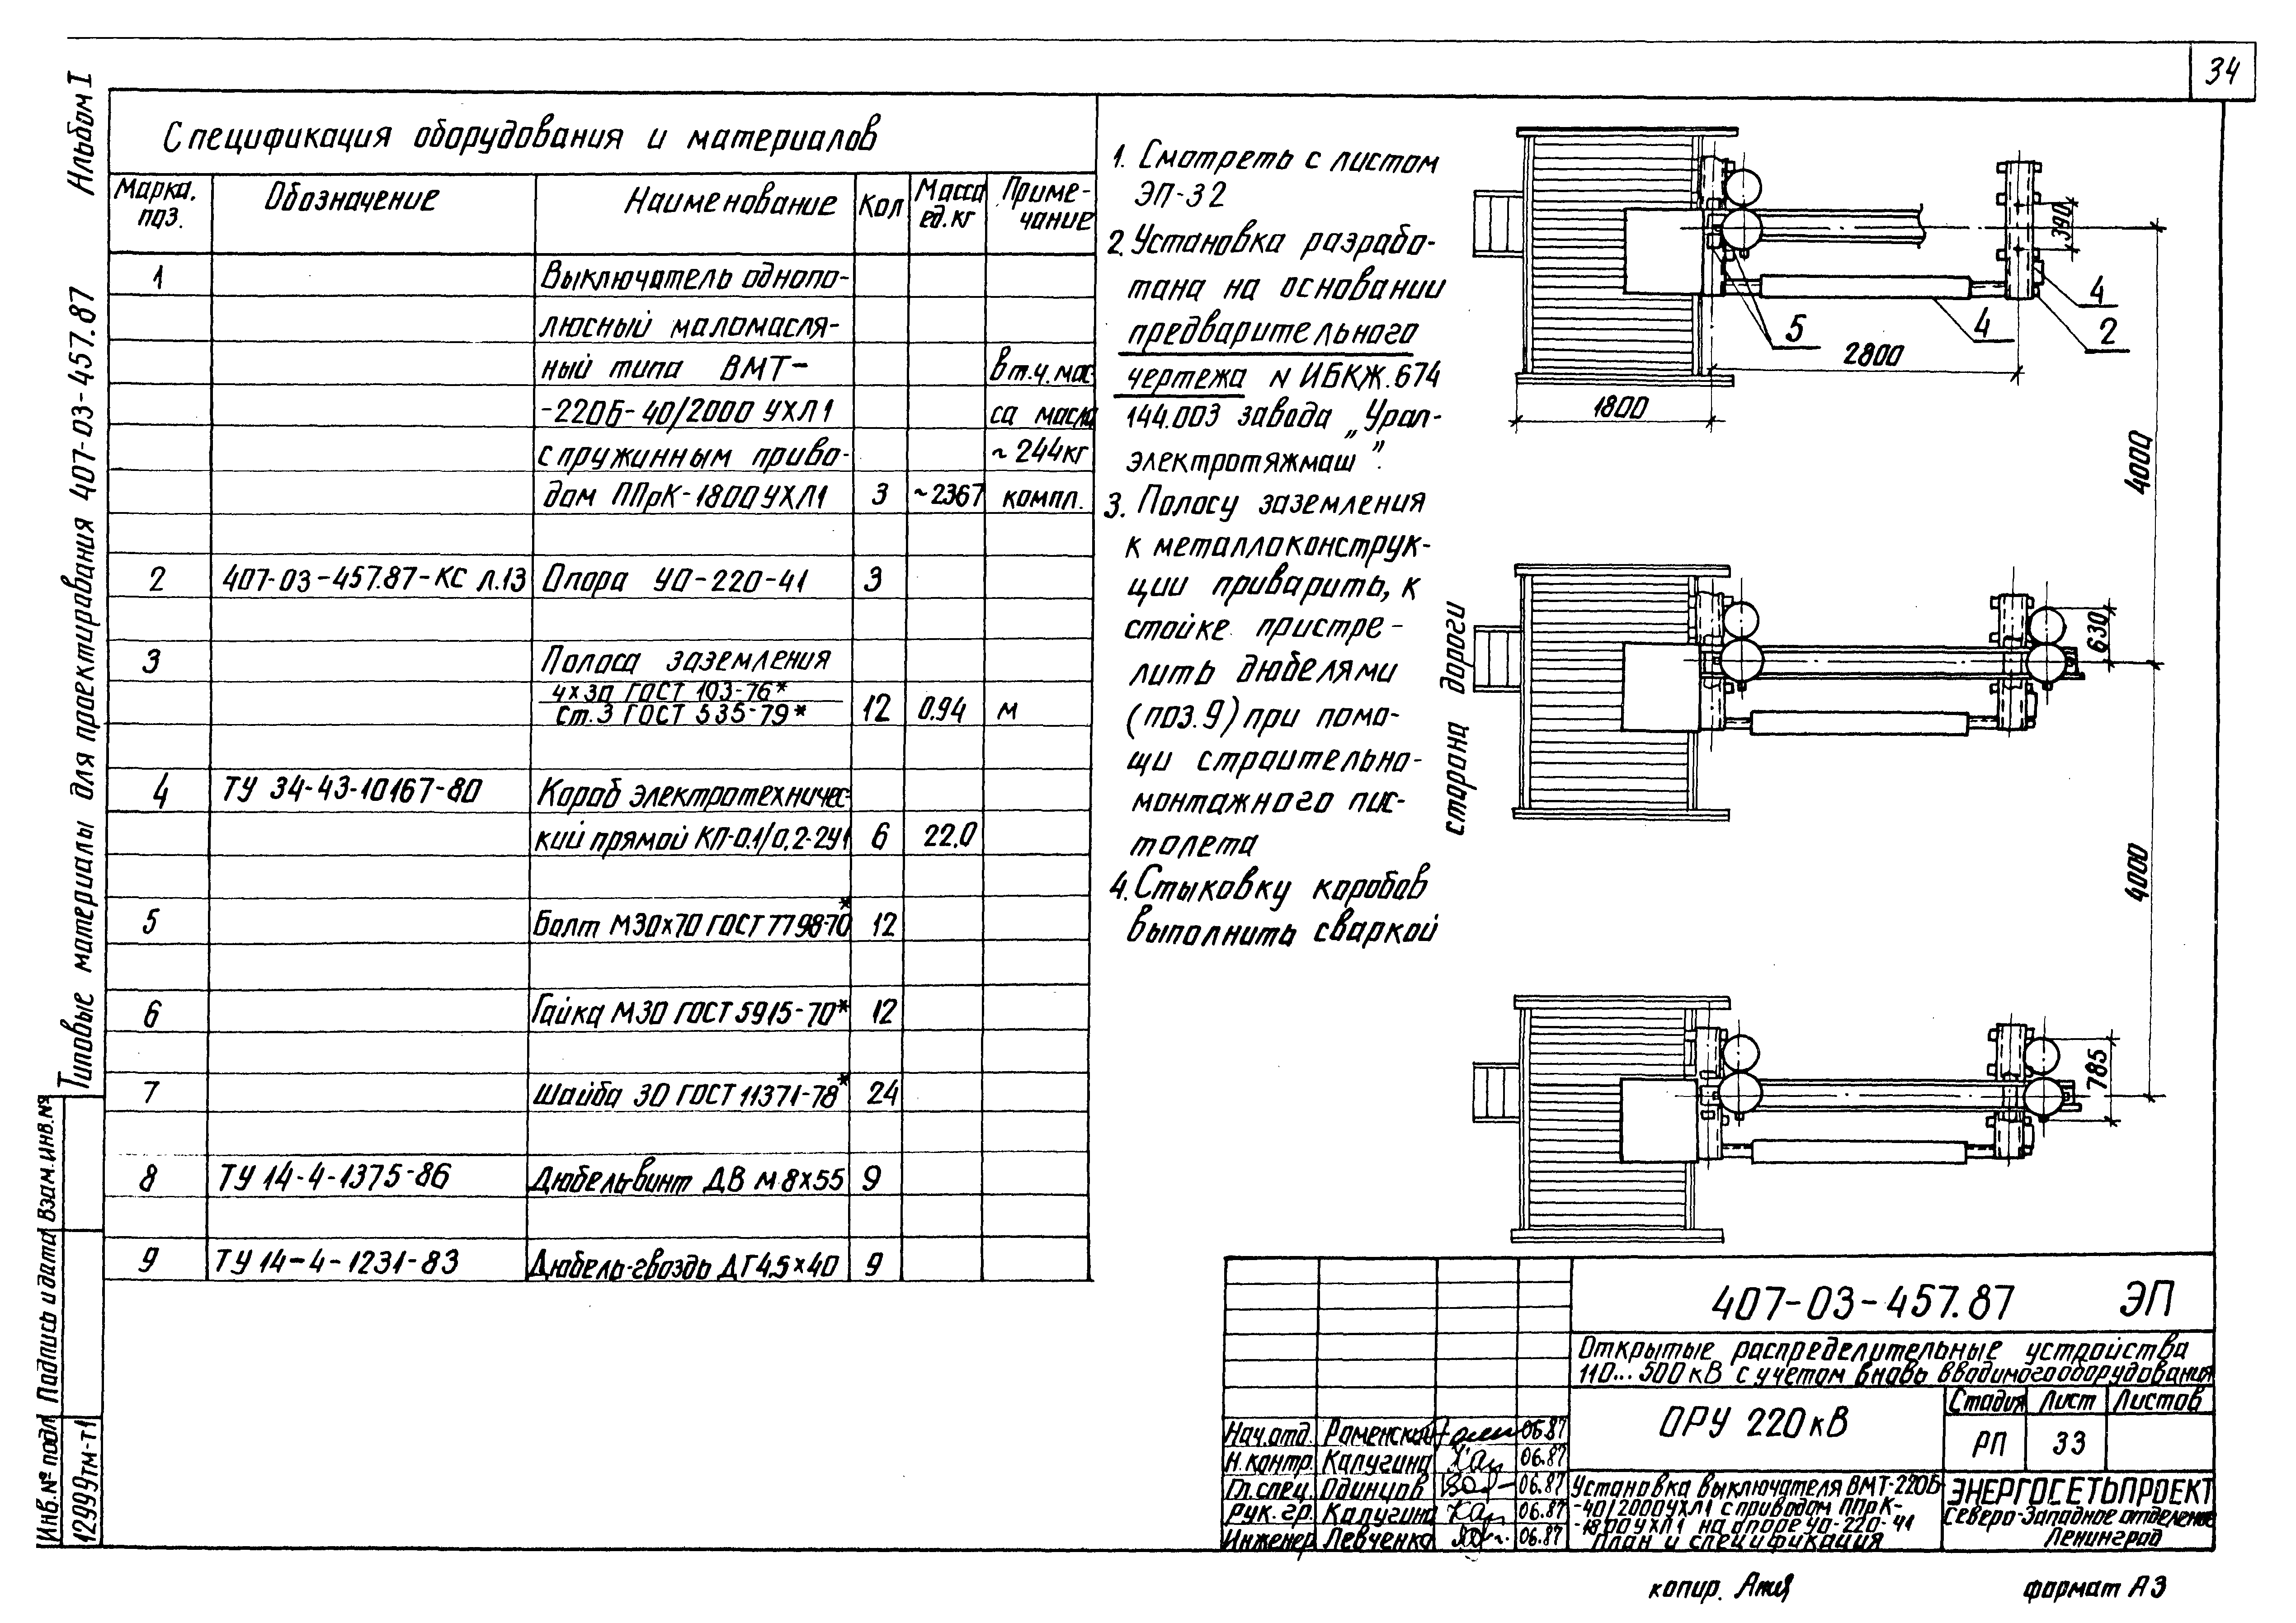 34
Альбом I
Типовые материалы для проектирования 407-03-457.87
Спецификация оборудования и материалов
Марка. поз.
Обозначение
Наименование
Кол
Масса ед. кг
Приме-
чание
1
Выключатель однопо-
люсный маломасля-
ный типа ВМТ-
в т.ч. мас
-220Б-40/2000 УХЛ1
са масла
с пружинным приво-
~244кг
дом ППрК-1800УХЛ1 3 ~2367 компл.
2 407-03-457.87-КС л.13 Опора УО-220-41 3
3 Полоса заземления
4х30 ГОСТ 103-76*
Ст.3 ГОСТ 535-79* 12 0.94 м
4 ТУ 34-43-10167-80 Короб электротехничес-
кий прямой КП-0.1/0,2-2У1 6 22.0
5 Болт М30х70 ГОСТ 7798-70* 12
6 Гайка М30 ГОСТ 5915-70* 12
7 Шайба 30 ГОСТ 11371-78* 24
8 ТУ 14-4-1375-86 Дюбель-винт ДВ М8х55 9
9 ТУ 14-4-1231-83 Дюбель-гвоздь ДГ4,5х40 9
1. Смотреть с листом
ЭП-32
2. Установка разрабо-
тана на основании
предварительного
чертежа N ИБКЖ.674
144.003 завода „Урал-
электротяжмаш".
3. Полосу заземления
к металлоконструк-
ции приварить, к
стойке пристре-
лить дюбелями
(поз.9) при помо-
щи строительно-
монтажного пис-
толета
4. Стыковку коробов
выполнить сваркой
сторона дороги
390
4
2
4
5
2800
1800
4000
630
4000
785
407-03-457.87 ЭП
Открытые распределительные устройства
110...500кВ с учетом вновь вводимого оборудования
ОРУ 220кВ
Стадия Лист Листов
РП 33
Установка выключателя ВМТ-220Б-
-40/2000УХЛ1 с приводом ППрК-
-1800УХЛ1 на опоре УО-220-41
План и спецификация
ЭНЕРГОСЕТЬПРОЕКТ
Северо-Западное отделение
Ленинград
Нач.отд. Раменский 06.87
Н.контр. Калугина 06.87
Гл.спец. Одинцов 06.87
Рук.гр. Калугина 06.87
Инженер Левченко 06.87
Инв.№ подл Подпись и дата Взам.инв.№
12999тм-т1
копир.
формат А3